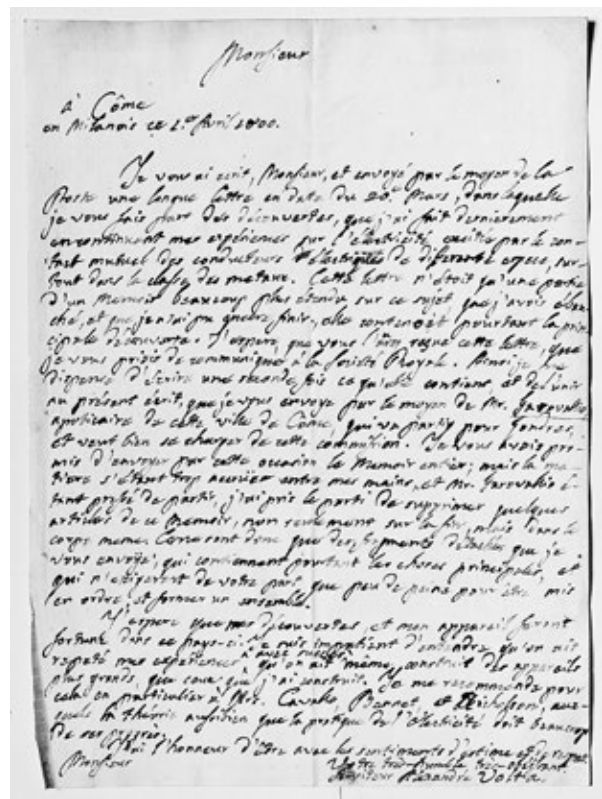 Monsieur
à Côme
en Milanois ce 1.er Avril 1800.
Je vous ai écrit, Monsieur, et envoyé par le moyen de la
Poste une longue lettre en data du 20e Mars, dans laquelle
je vous fais part des découvertes, que j'ai fait dernierement
en continuant mes expériences sur l'électricité excitée par le con-
tact mutuel des conducteurs de differente espece, sur-
tout dans la classe des metaux. Cette lettre n'étoit qu'une partie
d'un Memoir beaucoup plus étendu sur ce sujet que j'avois ébau-
ché, et que je n'ai pu encore finir, elle contenoit pourtant la prin-
cipale découverte. J'espere, que vous reçue cette lettre, que
je vous priois de communiquer à la Société Royale. Ainsi je
dispensé d'écrire une seconde fois ce qu'elle contient et
au présent écrit, que je vous envoye par le moyen de Mr. Garovaglio
apoticaire de cette ville de Côme, qui va partir pour Londres,
et veut bien se charger de cette commission. Je vous avois pro-
mis d'envoyer par cette occasion le Memoir entier; mais la ma-
tiere s'étant trop accrue entre mes mains, et Mr. Garovaglio é-
tant pressé de partir, j'ai pris le parti de supprimer quelques
articles de ce Memoir, non seulement sur la fin, mais dans le
corps meme. Ce ne sont donc que des fragments détachés que je
vous envoye, qui contiennent pourtant les choses principales, et
qui n'exigeront de votre part que peu de peine pour être mis
en ordre, et former un ensemble.
J'espere que mes découvertes, et mon appareil feront
fortune dans ce pays-ci: je suis impatient d'entendre qu'on ait
repeté mes expériences avec succès, qu'on ait meme construit des appareils
plus grands, que ceux que j'ai construit. Je me recommande pour
cela en particulier à Mrs. Cavallo, Bennet, et Nicholson, aux-
quels la théorie aussi bien que la pratique de l'électricité doit beaucoup
de ses progrès.
J'ai l'honneur d'être avec les sentiments d'estime et de respect
Monsieur
Votre très-humble très-obéissant
Serviteur Alexandre Volta.